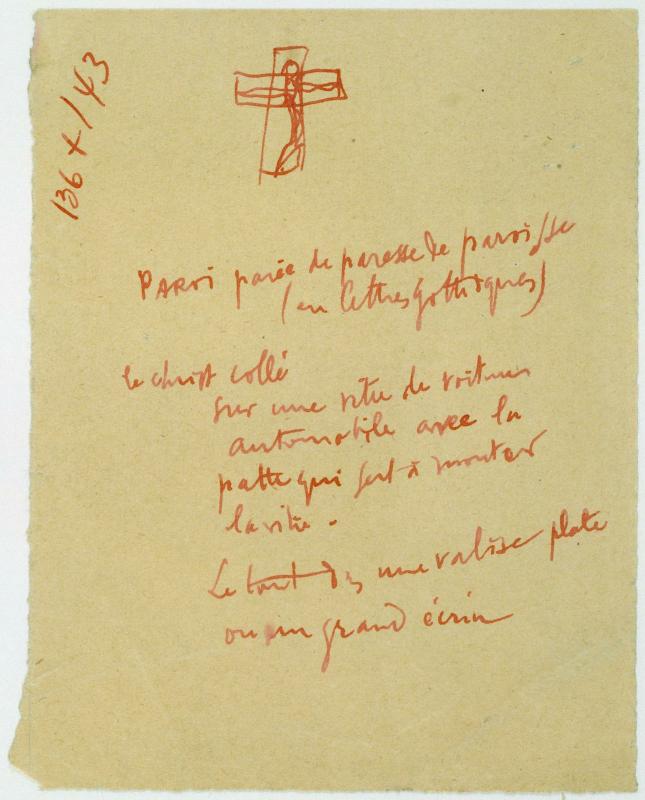 136 x 143
PAROI parée de paresse de paroisse
(en lettres gothiques)
le christ collé
sur une vitre de voiture
automobile avec la
patte qui sert à monter
la vitre.
Le tout ds une valise plate
ou un grand écrin